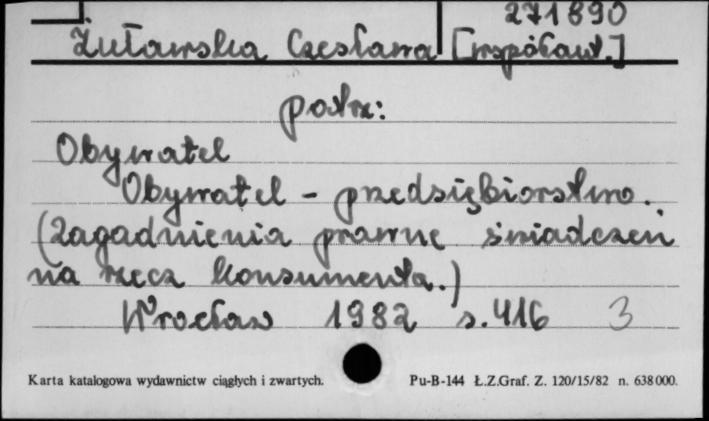 271890
Żuławska Czesława [współaut.]
patrz:
Obywatel
Obywatel - przedsiębiorstwo.
(Zagadnienia prawne świadczeń
na rzecz konsumenta.)
Wrocław 1982 s. 416 3
Karta katalogowa wydawnictw ciągłych i zwartych. Pu-B-144 Ł.Z.Graf. Z. 120/15/82 n. 638000.